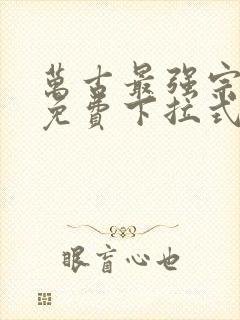 萬古最强宗
免費下拉式
眼盲心也